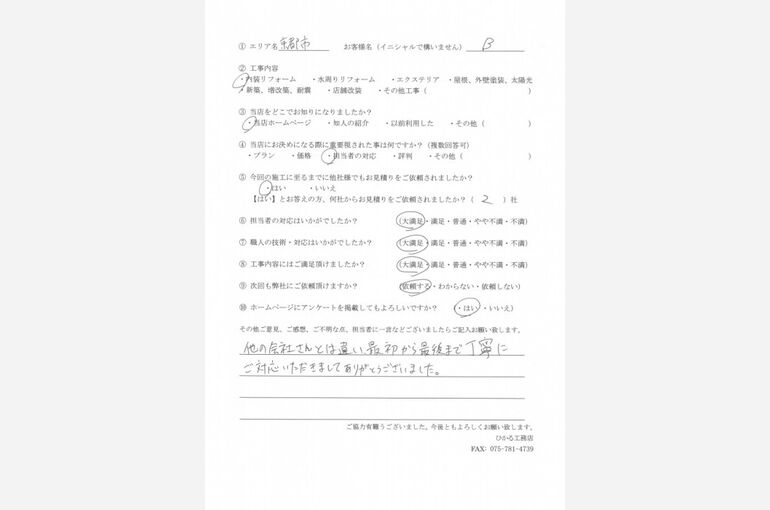 ① エリア名 京都市 お客様名（イニシャルで構いません） B
② 工事内容
・内装リフォーム ・水周りリフォーム ・エクステリア ・屋根、外壁塗装、太陽光
・新築、増改築、耐震 ・店舗改装 ・その他工事（ ）
③ 当店をどこでお知りになりましたか？
・当店ホームページ ・知人の紹介 ・以前利用した ・その他（ ）
④ 当店にお決めになる際に重要視された事は何ですか？（複数回答可）
・プラン ・価格 ・担当者の対応 ・評判 ・その他（ ）
⑤ 今回の施工に至るまでに他社様でもお見積りをご依頼されましたか？
・はい ・いいえ
【はい】とお答えの方、何社からお見積りをご依頼されましたか？（ 2 ）社
⑥ 担当者の対応はいかがでしたか？ （大満足・満足・普通・やや不満・不満）
⑦ 職人の技術・対応はいかがでしたか？ （大満足・満足・普通・やや不満・不満）
⑧ 工事内容にはご満足頂けましたか？ （大満足・満足・普通・やや不満・不満）
⑨ 次回も弊社にご依頼頂けますか？ （依頼する・わからない・依頼しない）
⑩ ホームページにアンケートを掲載してもよろしいですか？ （・はい・いいえ）
その他ご意見、ご感想、ご不明な点、担当者に一言などございましたらご記入お願い致します。
他の会社さんとは違い最初から最後まで丁寧に
ご対応いただきましてありがとうございました。
ご協力有難うございました。今後ともよろしくお願い致します。
ひかる工務店
FAX: 075-781-4739